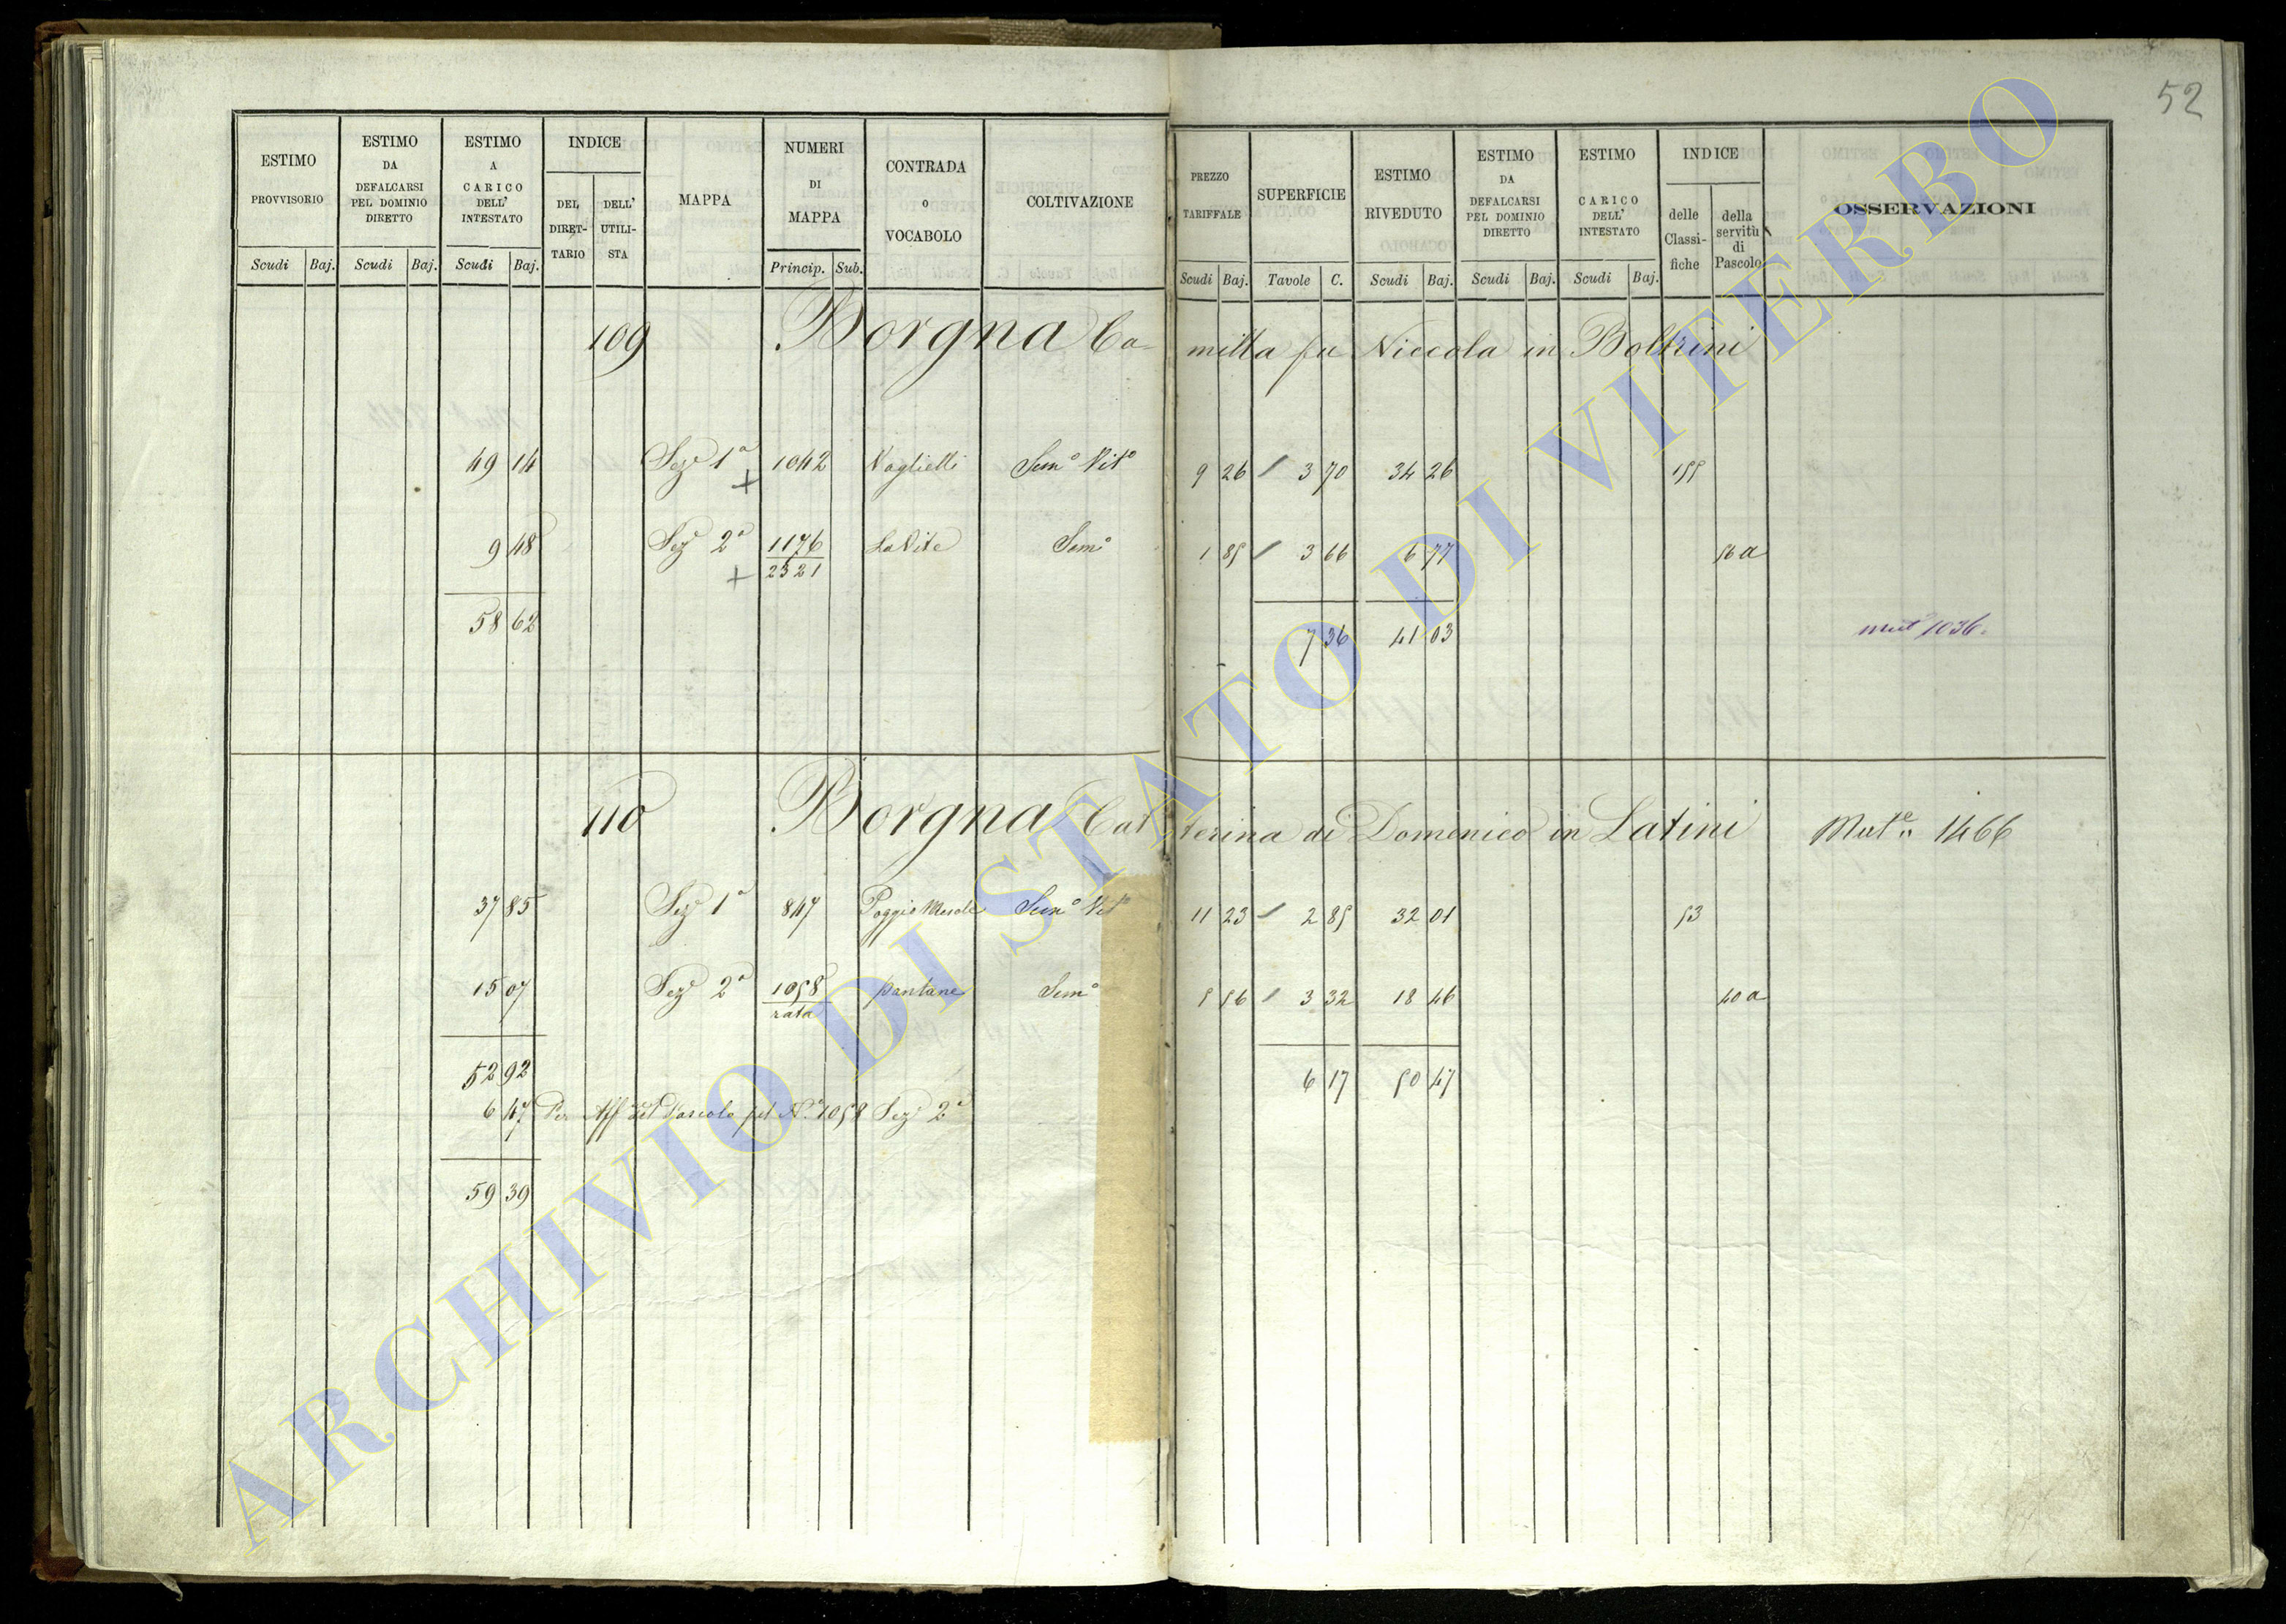 52
ESTIMO PROVVISORIO
ESTIMO DA DEFALCARSI PEL DOMINIO DIRETTO
ESTIMO A CARICO DELL' INTESTATO
INDICE
DEL DIRET-TARIO
DELL' UTILI-STA
MAPPA
NUMERI DI MAPPA
CONTRADA O VOCABOLO
COLTIVAZIONE
PREZZO TARIFFALE
SUPERFICIE
ESTIMO RIVEDUTO
ESTIMO DA DEFALCARSI PEL DOMINIO DIRETTO
ESTIMO A CARICO DELL' INTESTATO
INDICE
delle Classi-fiche
della servitù di Pascolo
OSSERVAZIONI
Scudi Baj. Scudi Baj. Scudi Baj. Princip. Sub. Scudi Baj. Tavole C. Scudi Baj. Scudi Baj. Scudi Baj.
109 Borgna Ca-milla fu Niccola in Boltrini
49 14 Sez.e 1a 1042 Voglietti Sem.o Vit.o 9 26 3 70 34 26 155
9 48 Sez.e 2a 1176/2321 La Vite Sem.o 1 85 3 66 6 77 56 a
58 62 7 36 41 03 mut 1036.
110 Borgna Cat-terina di Domenico in Latini Mut.e 1466
37 85 Sez.e 1a 847 Poggio Sem.o Vit.o 11 23 2 85 32 01 53
15 07 Sez.e 2a 1058/rata Pantane Sem.o 5 56 3 32 18 46 40 a
52 92 6 17 50 47
6 47 Per Aff del Pascolo pel N.o 1058 Sez.e 2a
59 39
ARCHIVIO DI STATO DI VITERBO